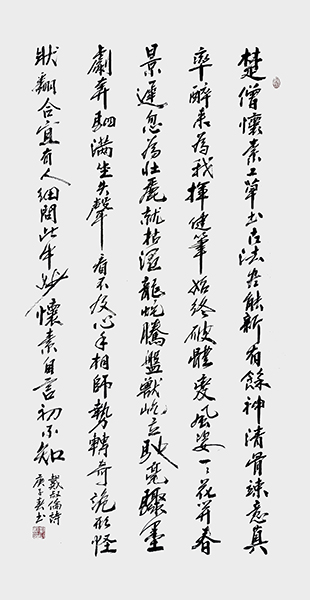 楚僧懷素工草書古法盡能新有餘神清骨竦意真
率醉來為我揮健筆始終破體變風姿一一花開春
景遲忽為壯麗就枯澀龍蛇騰盤獸屹立馳毫驟墨
劇奔駟滿坐失聲看不及心手相師勢轉奇詭形怪
狀翻合宜有人細問此中妙懷素自言初不知
戴叔倫詩
庚子書